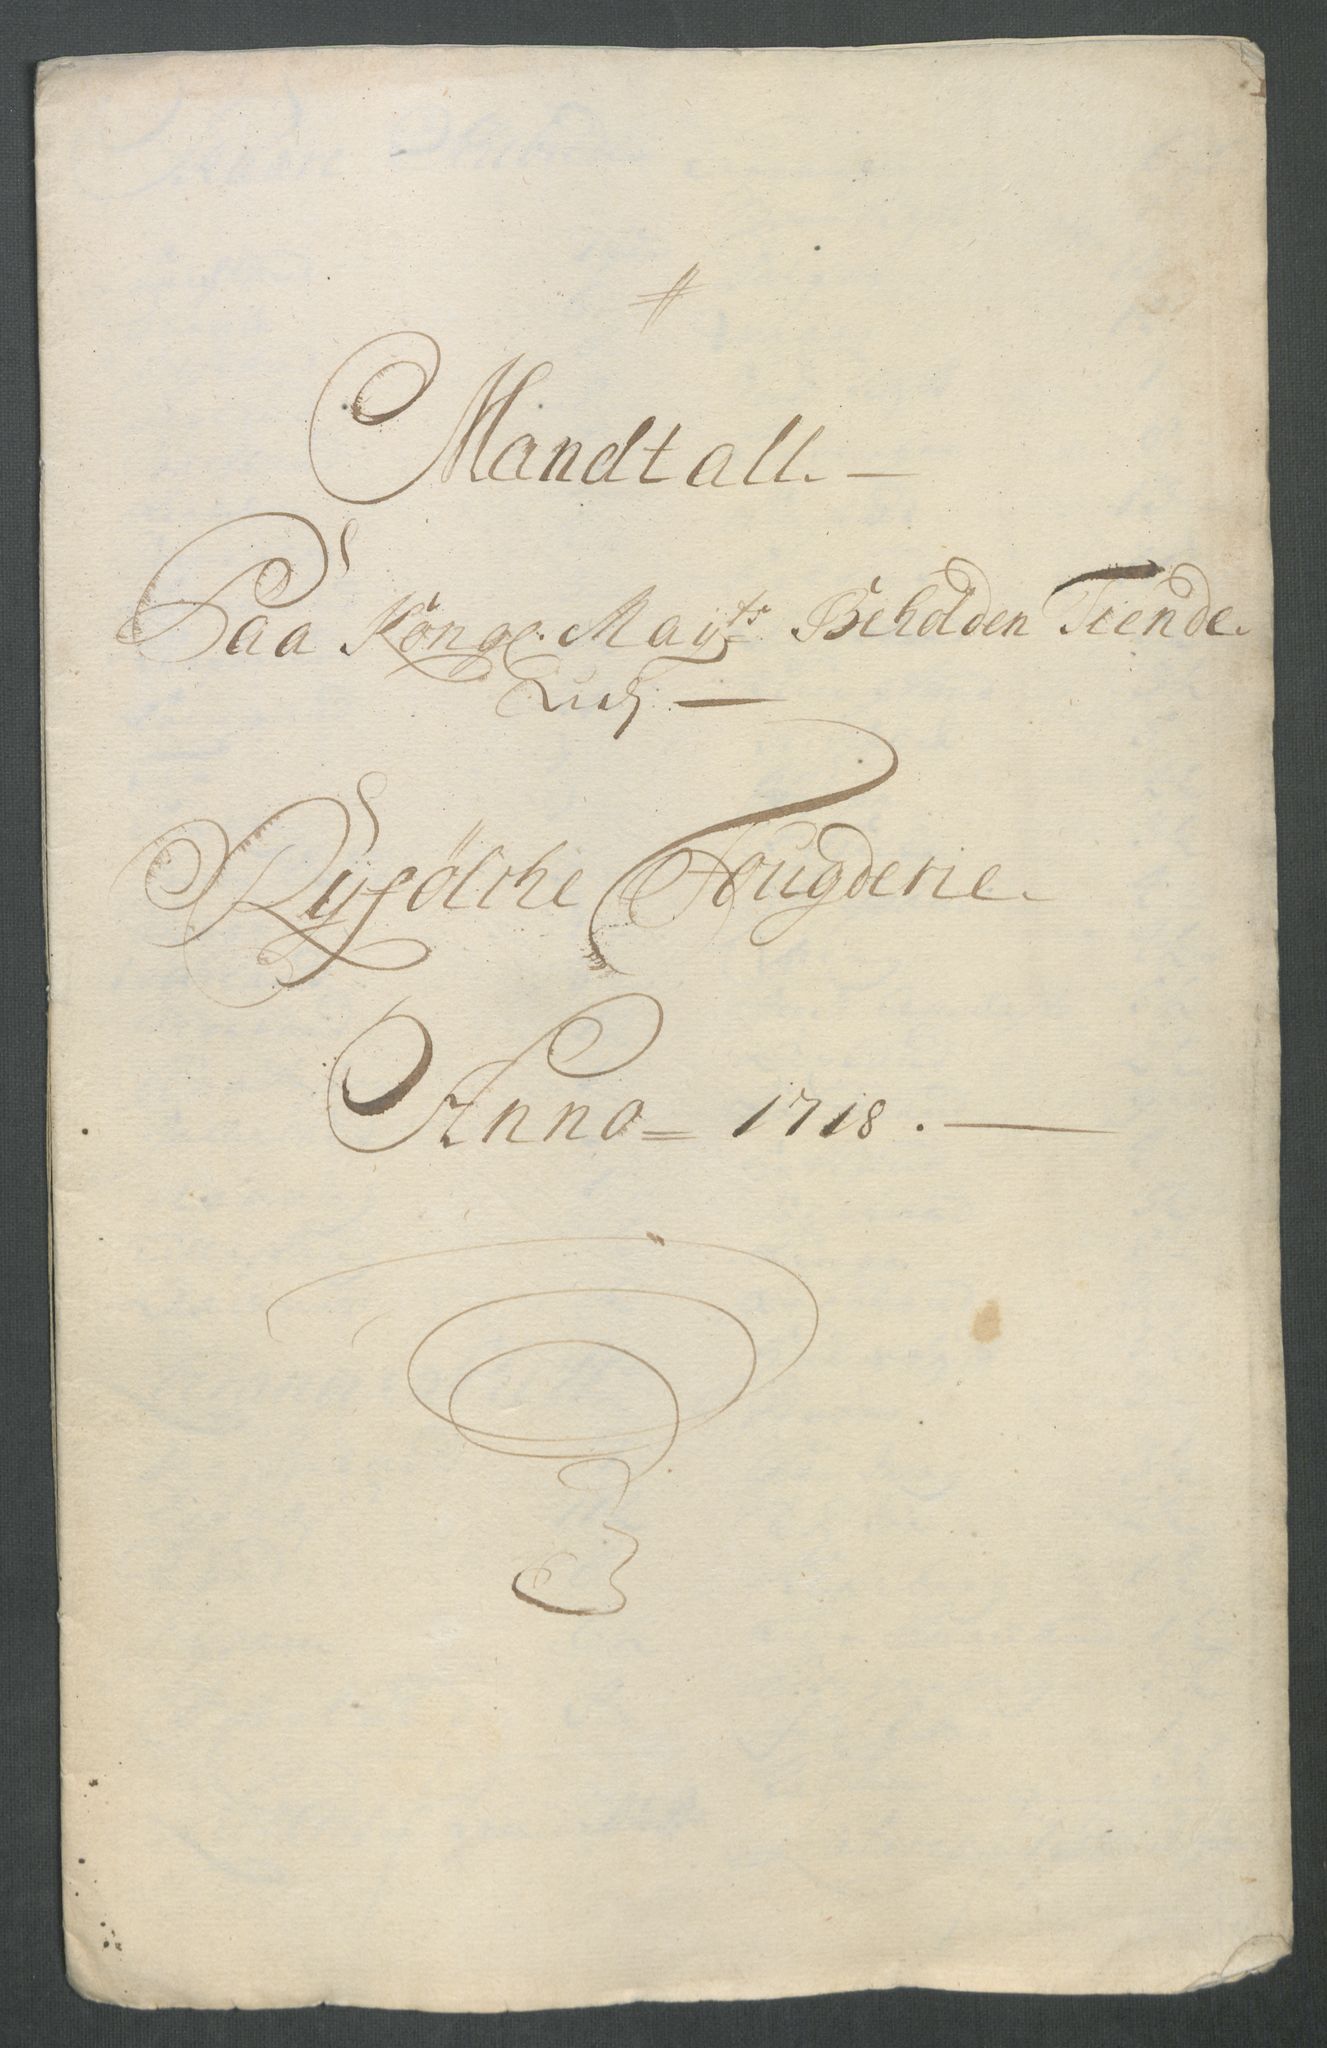 Mandtall.—
Paa Konge. Mayts Beholden Tiende
Ryfölche Fougderie.
Anno = 1718. —